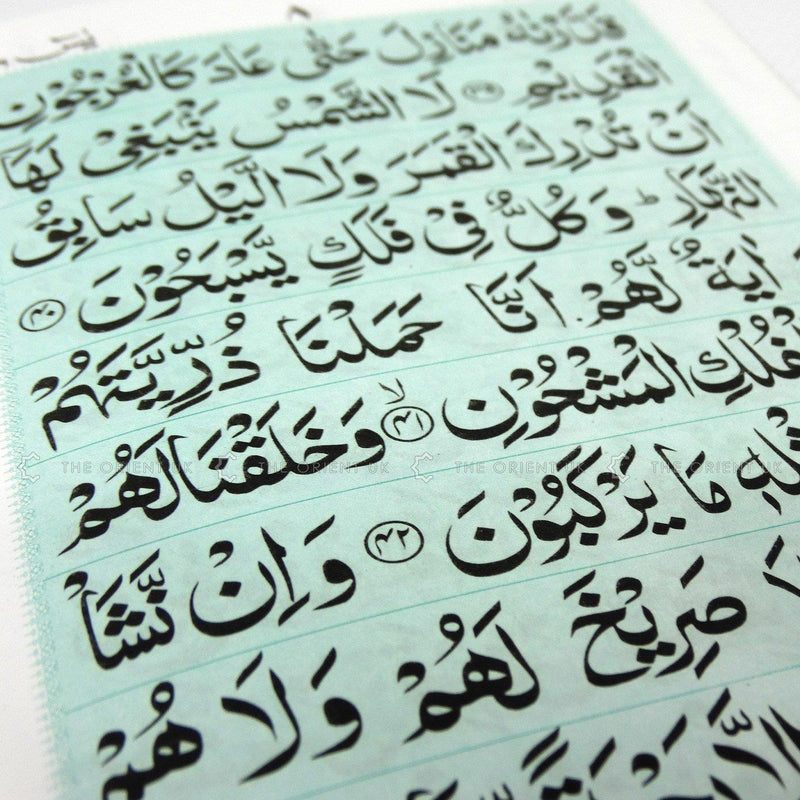 قَدَّرْنٰهُ مَنَازِلَ حَتّٰى عَادَ كَالْعُرْجُوْنِ
الْقَدِيْمِ ۳۹ لَا الشَّمْسُ يَنْۢبَغِىْ لَهَاۤ
اَنْ تُدْرِكَ الْقَمَرَ وَلَا الَّيْلُ سَابِقُ
النَّهَارِ ؕ وَ كُلٌّ فِىْ فَلَكٍ يَّسْبَحُوْنَ ۴۰
اٰيَةٌ لَّهُمْ اَنَّا حَمَلْنَا ذُرِّيَّتَهُمْ
فُلْكِ الْمَشْحُوْنِ ۴۱ ۙ وَخَلَقْنَا لَهُمْ
مَا يَرْكَبُوْنَ ۴۲ وَاِنْ نَّشَاْ
صَرِيْخَ لَهُمْ وَلَا هُمْ
THE ORIENT UK THE ORIENT UK THE ORIENT UK THE ORIENT UK